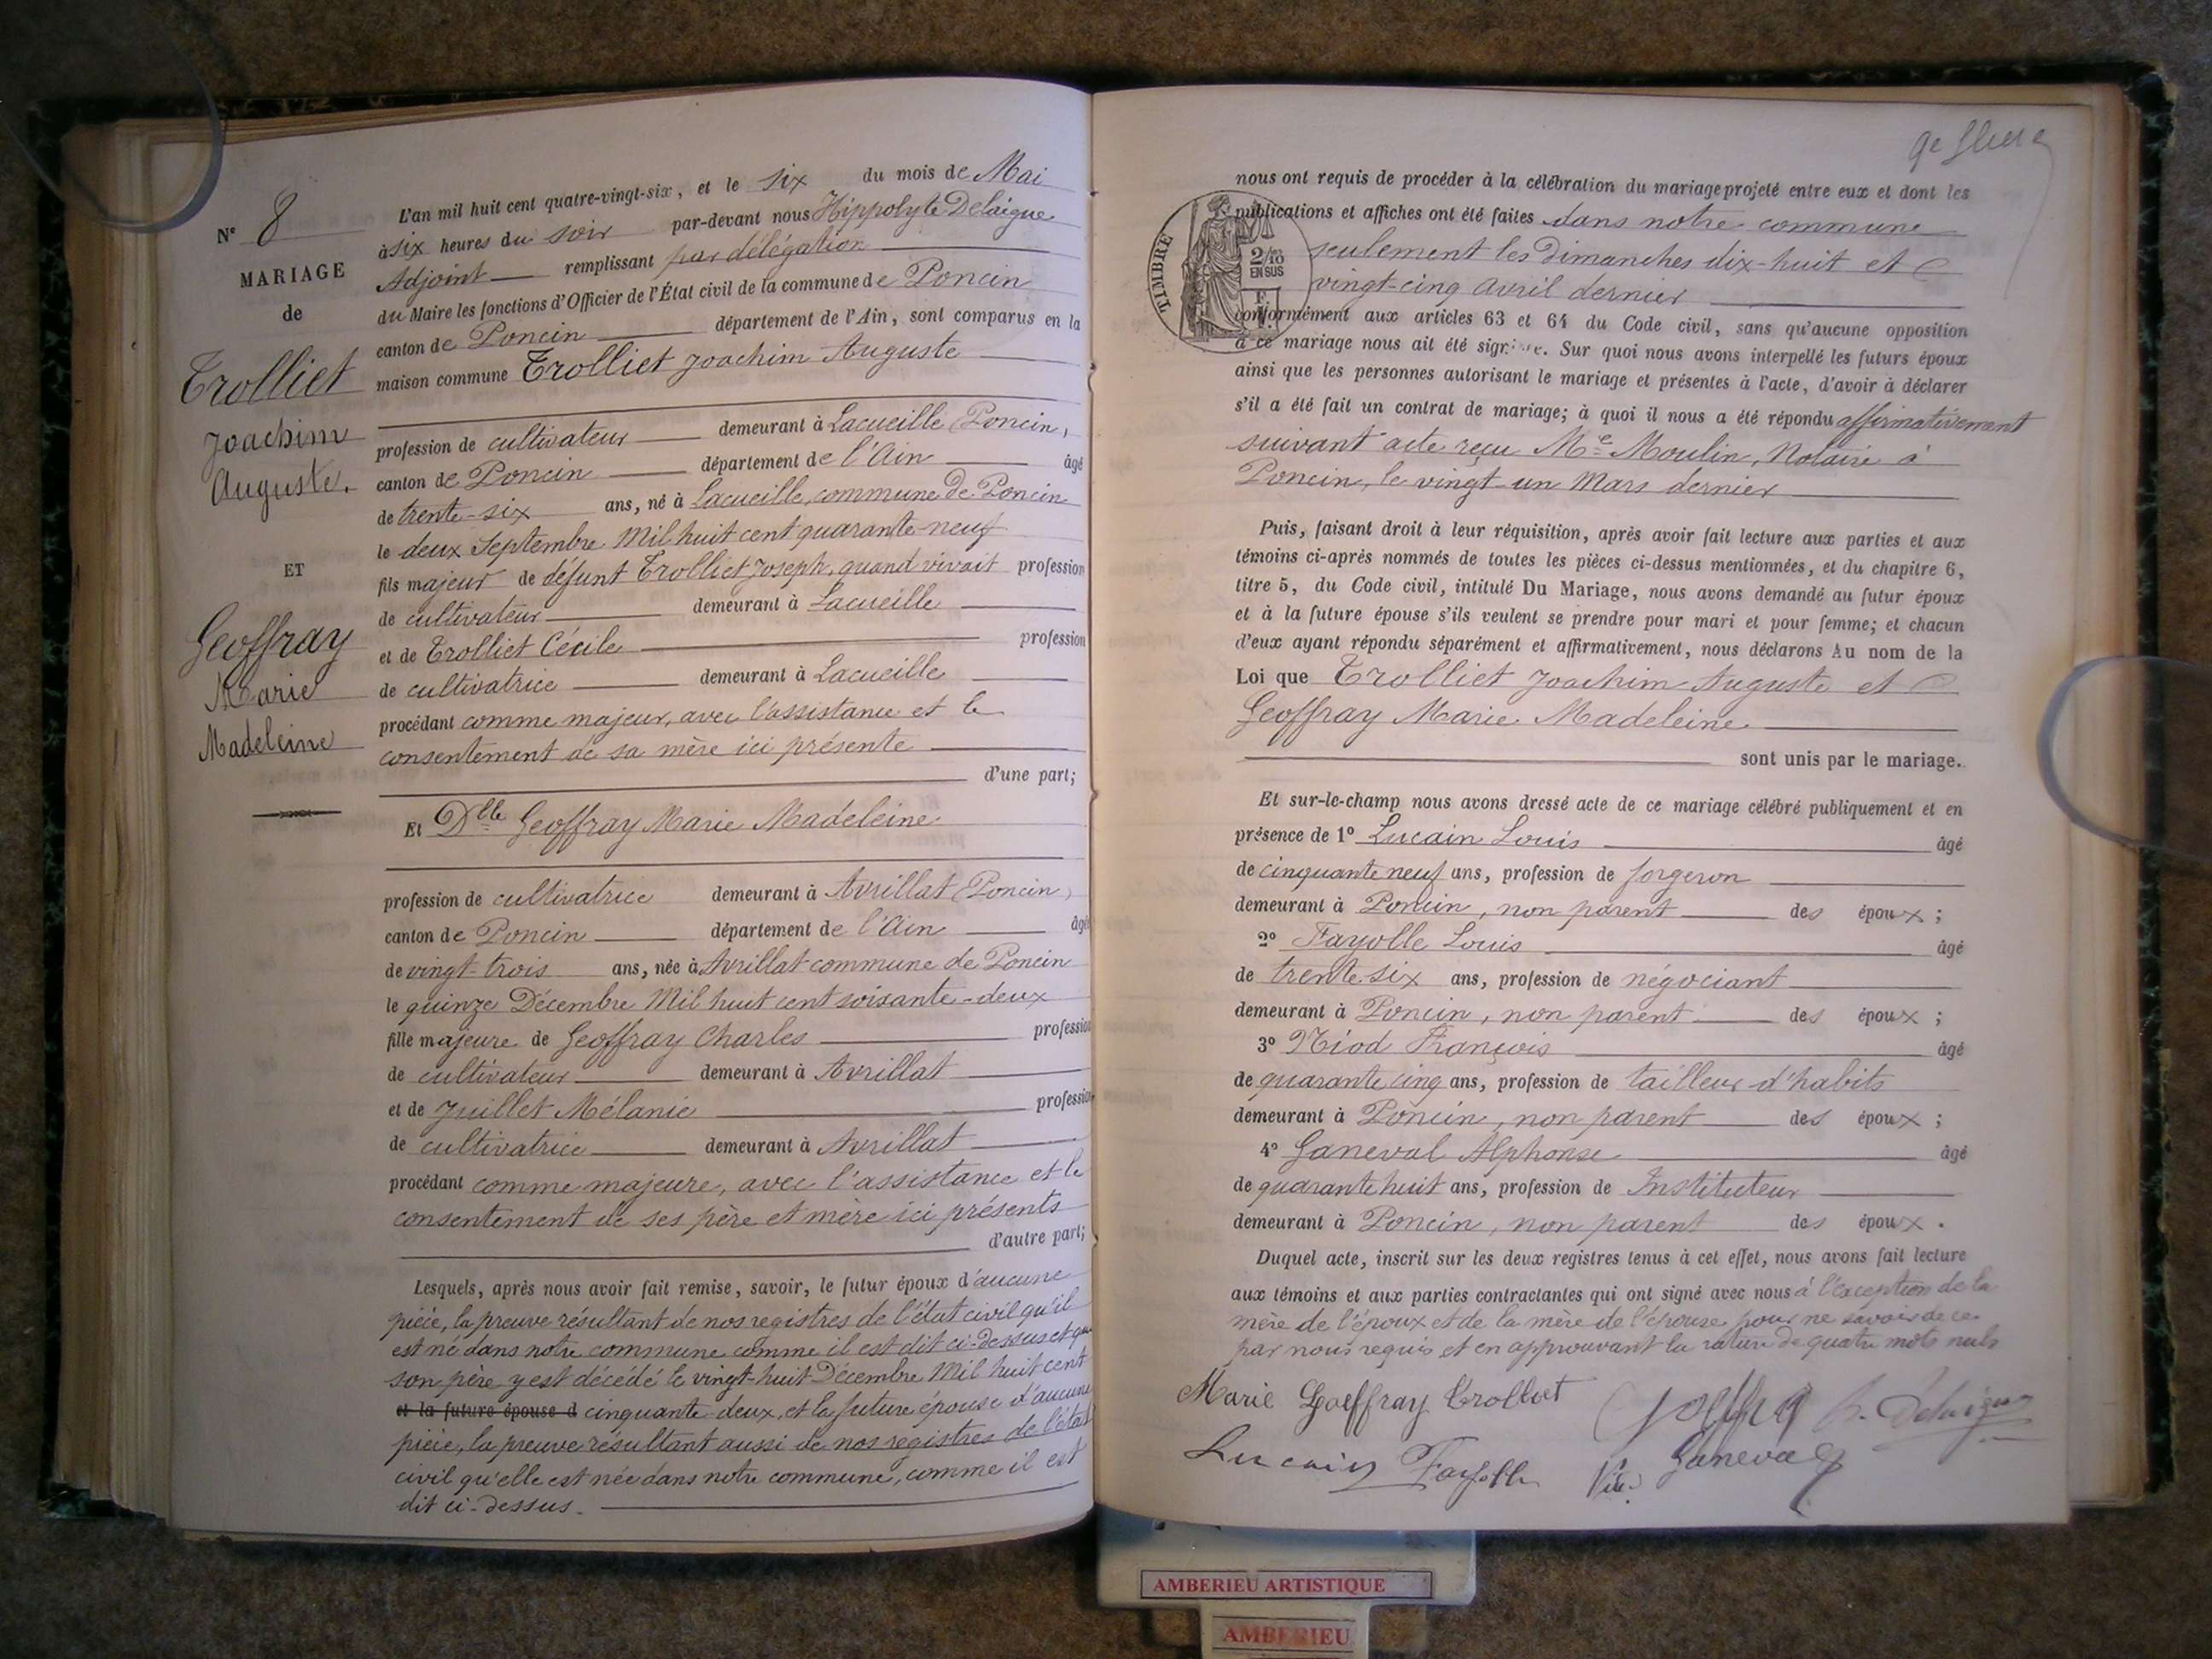 N° 8
MARIAGE
de
Trolliet
Joachim
Auguste.
ET
Geoffray
Marie
Madeleine
L'an mil huit cent quatre-vingt-six, et le six du mois de Mai
à six heures du soir par-devant nous Hippolyte Delaigue
Adjoint remplissant par délégation
du Maire les fonctions d'Officier de l'État civil de la commune de Poncin
canton de Poncin département de l'Ain, sont comparus en la
maison commune Trolliet Joachim Auguste
profession de cultivateur demeurant à Lacueille (Poncin)
canton de Poncin département de l'Ain âgé
de trente-six ans, né à Lacueille, commune de Poncin
le deux Septembre Mil huit cent quarante-neuf
fils majeur de défunt Trolliet Joseph, quand vivait profession
de cultivateur demeurant à Lacueille
et de Trolliet Cécile profession
de cultivatrice demeurant à Lacueille
procédant comme majeur, avec l'assistance et le
consentement de sa mère ici présente
d'une part;
Et Dlle Geoffray Marie Madeleine
profession de cultivatrice demeurant à Avrillat (Poncin)
canton de Poncin département de l'Ain âgée
de vingt-trois ans, née à Avrillat commune de Poncin
le quinze Décembre Mil huit cent soixante-deux
fille majeure de Geoffray Charles profession
de cultivateur demeurant à Avrillat
et de Juillet Mélanie profession
de cultivatrice demeurant à Avrillat
procédant comme majeure, avec l'assistance et le
consentement de ses père et mère ici présents
d'autre part;
Lesquels, après nous avoir fait remise, savoir, le futur époux d'aucune
pièce, la preuve résultant de nos registres de l'état civil qu'il
est né dans notre commune comme il est dit ci-dessus et que
son père y est décédé le vingt-huit Décembre Mil huit cent
et la future épouse d cinquante-deux, et la future épouse d'aucune
pièce, la preuve résultant aussi de nos registres de l'état
civil qu'elle est née dans notre commune, comme il est
dit ci-dessus.
nous ont requis de procéder à la célébration du mariage projeté entre eux et dont les
publications et affiches ont été faites dans notre commune
seulement les Dimanches dix-huit et
vingt-cinq avril dernier
TIMBRE
2/10
EN SUS
conformément aux articles 63 et 64 du Code civil, sans qu'aucune opposition
à ce mariage nous ait été signifiée. Sur quoi nous avons interpellé les futurs époux
ainsi que les personnes autorisant le mariage et présentes à l'acte, d'avoir à déclarer
s'il a été fait un contrat de mariage; à quoi il nous a été répondu affirmativement
suivant acte reçu Me Moulin, Notaire à
Poncin, le vingt-un Mars dernier
Puis, faisant droit à leur réquisition, après avoir fait lecture aux parties et aux
témoins ci-après nommés de toutes les pièces ci-dessus mentionnées, et du chapitre 6,
titre 5, du Code civil, intitulé Du Mariage, nous avons demandé au futur époux
et à la future épouse s'ils veulent se prendre pour mari et pour femme; et chacun
d'eux ayant répondu séparément et affirmativement, nous déclarons Au nom de la
Loi que Trolliet Joachim Auguste et
Geoffray Marie Madeleine
sont unis par le mariage.
Et sur-le-champ nous avons dressé acte de ce mariage célébré publiquement et en
présence de 1° Lucain Louis âgé
de cinquante neuf ans, profession de forgeron
demeurant à Poncin, non parent des époux;
2° Fayolle Louis âgé
de trente-six ans, profession de négociant
demeurant à Poncin, non parent des époux;
3° Niod François âgé
de quarante cinq ans, profession de tailleur d'habits
demeurant à Poncin, non parent des époux;
4° Ganeval Alphonse âgé
de quarante huit ans, profession de Instituteur
demeurant à Poncin, non parent des époux.
Duquel acte, inscrit sur les deux registres tenus à cet effet, nous avons fait lecture
aux témoins et aux parties contractantes qui ont signé avec nous à l'exception de la
mère de l'époux et de la mère de l'épouse pour ne savoir de ce
par nous requis et en approuvant la rature de quatre mots nuls
Marie Goeffray Trolliet H. Delaigue
Lucain Fayolle Ganeval
AMBERIEU ARTISTIQUE
AMBERIEU